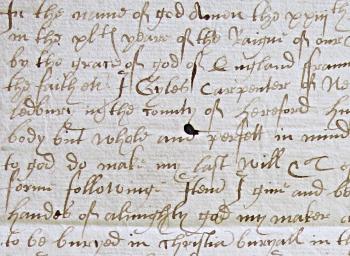 In the name of god Amen the xxiiith
in the xlth yeare of the Raigne of our
by the grace of god of England fraun
the faith etc I Gyles Carpenter of Ne
Ledbury in the county of hereford
body but whole and perfett in mind
to god do make my last will & T
forme followinge Item I give and be
handes of almighty god my maker
to be buryed in Christia buryall in th